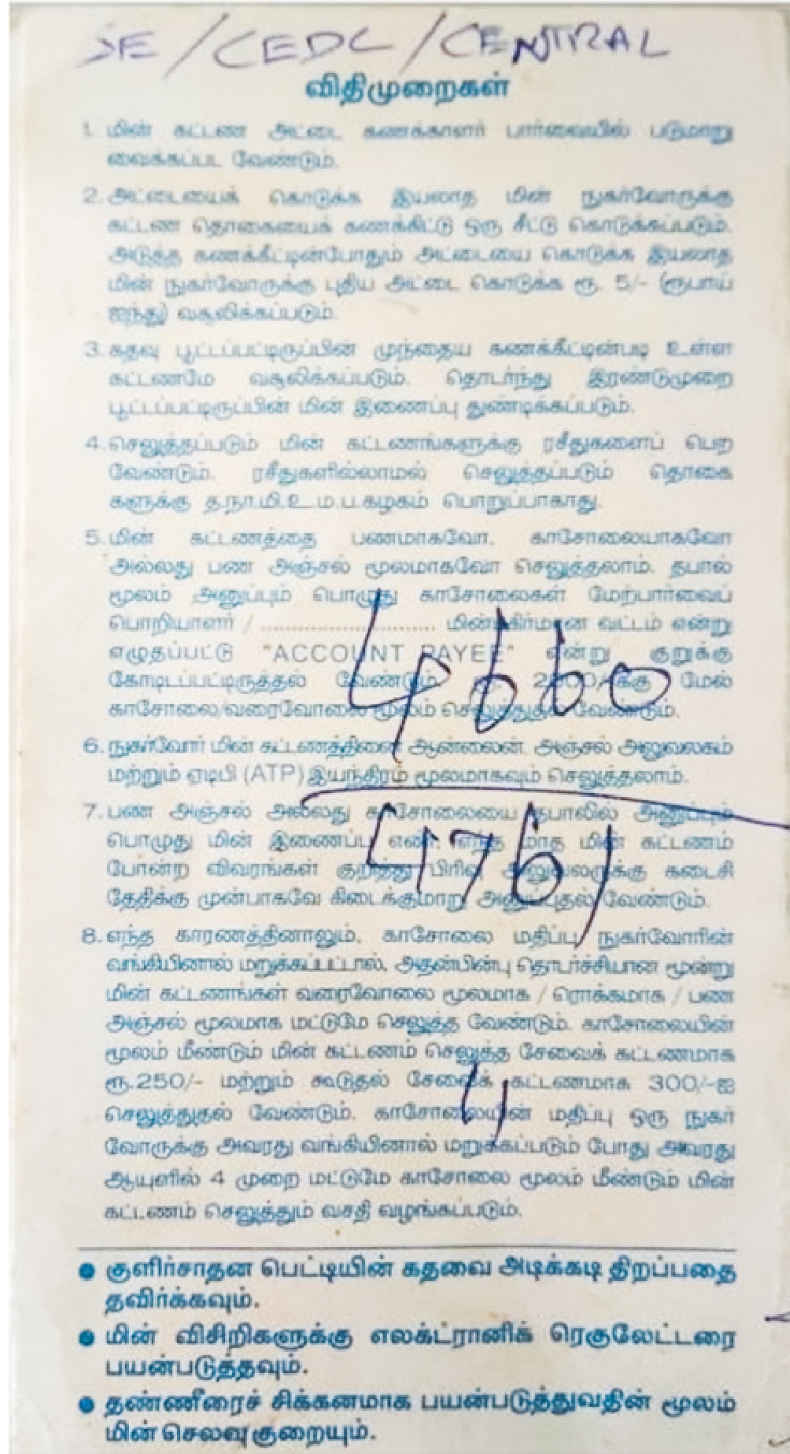 SE/CEDC/CENTRAL
விதிமுறைகள்
1. மின் கட்டண அட்டை கணக்காளர் பார்வையில் படுமாறு
வைக்கப்பட வேண்டும்.
2. அட்டையைக் கொடுக்க இயலாத மின் நுகர்வோருக்கு
கட்டண தொகையைக் கணக்கிட்டு ஒரு சீட்டு கொடுக்கப்படும்.
அடுத்த கணக்கீட்டின்போதும் அட்டையை கொடுக்க இயலாத
மின் நுகர்வோருக்கு புதிய அட்டை கொடுக்க ரூ. 5/- (ரூபாய்
ஐந்து) வசூலிக்கப்படும்.
3. கதவு பூட்டப்பட்டிருப்பின் முந்தைய கணக்கீட்டின்படி உள்ள
கட்டணமே வசூலிக்கப்படும். தொடர்ந்து இரண்டுமுறை
பூட்டப்பட்டிருப்பின் மின் இணைப்பு துண்டிக்கப்படும்.
4. செலுத்தப்படும் மின் கட்டணங்களுக்கு ரசீதுகளைப் பெற
வேண்டும். ரசீதுகளில்லாமல் செலுத்தப்படும் தொகை
களுக்கு த.நா.மி.உ.ம.ப.கழகம் பொறுப்பாகாது.
5. மின் கட்டணத்தை பணமாகவோ, காசோலையாகவோ
அல்லது பண அஞ்சல் மூலமாகவோ செலுத்தலாம். தபால்
மூலம் அனுப்பும் பொழுது காசோலைகள் மேற்பார்வைப்
பொறியாளர் / ............................ மின்பகிர்மான வட்டம் என்று
எழுதப்பட்டு "ACCOUNT PAYEE" என்று குறுக்கு
கோடிடப்பட்டிருத்தல் வேண்டும். ரூ. 2000/-க்கு மேல்
காசோலை/வரைவோலை மூலம் செலுத்துதல் வேண்டும்.
4660
6. நுகர்வோர் மின் கட்டணத்தினை ஆன்லைன், அஞ்சல் அலுவலகம்
மற்றும் ஏடிபி (ATP) இயந்திரம் மூலமாகவும் செலுத்தலாம்.
7. பண அஞ்சல் அல்லது காசோலையை தபாலில் அனுப்பும்
பொழுது மின் இணைப்பு எண், எந்த மாத மின் கட்டணம்
போன்ற விவரங்கள் குறித்து பிரிவு அலுவலருக்கு கடைசி
தேதிக்கு முன்பாகவே கிடைக்குமாறு அனுப்புதல் வேண்டும்.
4761
8. எந்த காரணத்தினாலும், காசோலை மதிப்பு நுகர்வோரின்
வங்கியினால் மறுக்கப்பட்டால், அதன்பின்பு தொடர்ச்சியான மூன்று
மின் கட்டணங்கள் வரைவோலை மூலமாக / ரொக்கமாக / பண
அஞ்சல் மூலமாக மட்டுமே செலுத்த வேண்டும். காசோலையின்
மூலம் மீண்டும் மின் கட்டணம் செலுத்த சேவைக் கட்டணமாக
ரூ.250/- மற்றும் கூடுதல் சேவைக் கட்டணமாக 300/-ஐ
செலுத்துதல் வேண்டும். காசோலையின் மதிப்பு ஒரு நுகர்
வோருக்கு அவரது வங்கியினால் மறுக்கப்படும் போது அவரது
ஆயுளில் 4 முறை மட்டுமே காசோலை மூலம் மீண்டும் மின்
கட்டணம் செலுத்தும் வசதி வழங்கப்படும்.
● குளிர்சாதன பெட்டியின் கதவை அடிக்கடி திறப்பதை
தவிர்க்கவும்.
● மின் விசிறிகளுக்கு எலக்ட்ரானிக் ரெகுலேட்டரை
பயன்படுத்தவும்.
● தண்ணீரைச் சிக்கனமாக பயன்படுத்துவதின் மூலம்
மின் செலவு குறையும்.